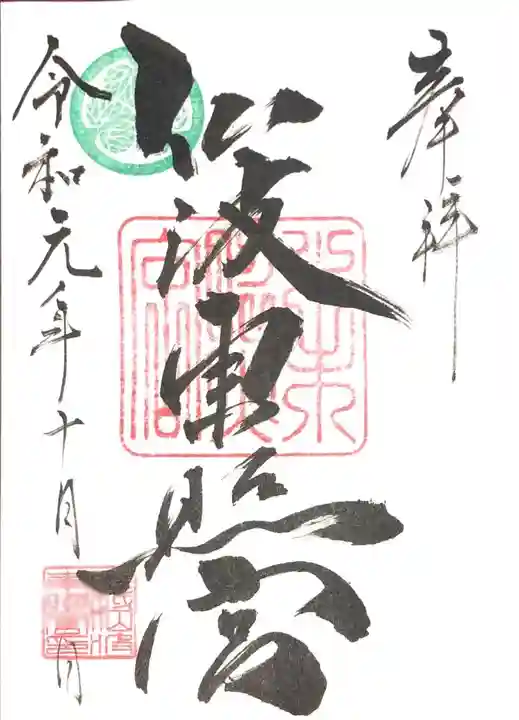 奉拝
仙波東照宮
令和元年十月